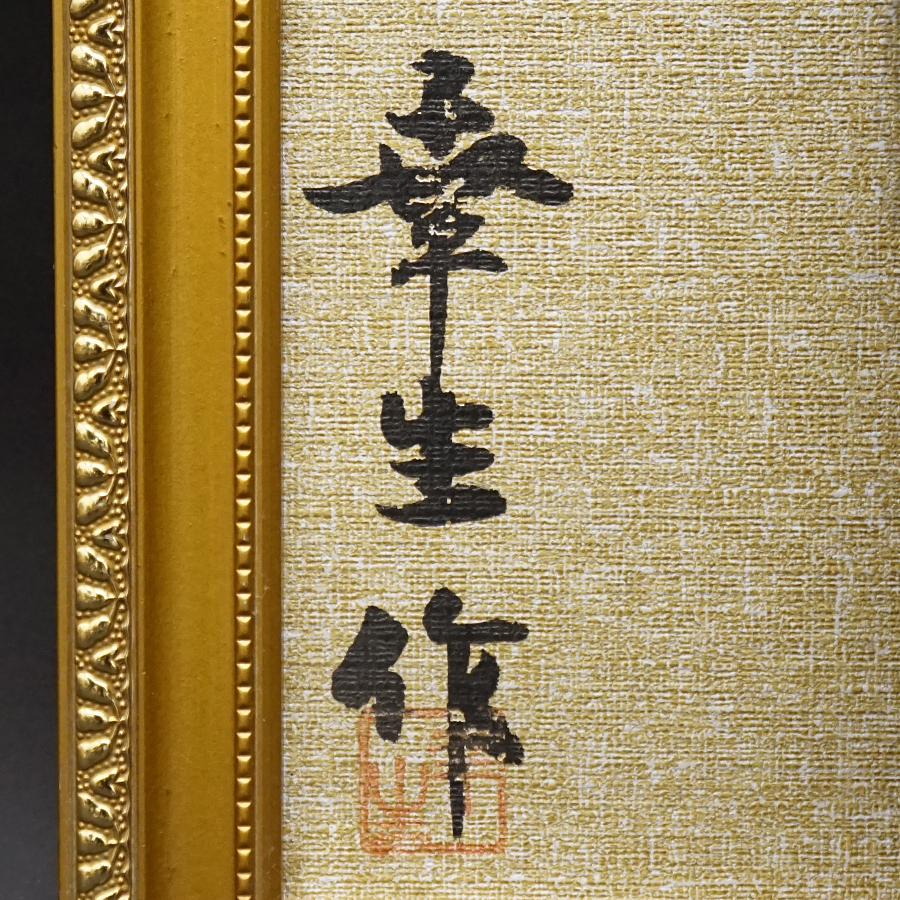 幸生作